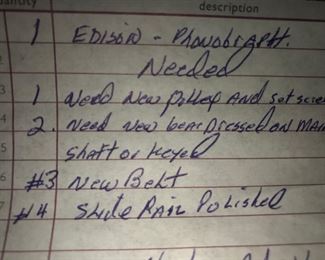 description
1 EDISON - Phonograph.
Needed
1 Need New Pulley And set scre
2. Need New bear Dressed on MAI
Shaft or Keyed
#3 New Belt
#4 Slide Rail Polished